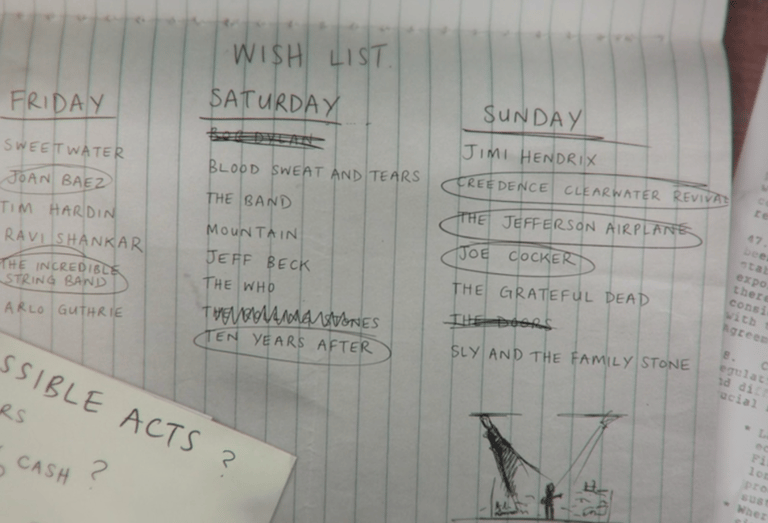 WISH LIST.
FRIDAY
SWEETWATER
JOAN BAEZ
TIM HARDIN
RAVI SHANKAR
THE INCREDIBLE
STRING BAND
ARLO GUTHRIE
SATURDAY
BOB DYLAN
BLOOD SWEAT AND TEARS
THE BAND
MOUNTAIN
JEFF BECK
THE WHO
TEN YEARS AFTER
SUNDAY
JIMI HENDRIX
CREEDENCE CLEARWATER REVIVAL
THE JEFFERSON AIRPLANE
JOE COCKER
THE GRATEFUL DEAD
THE DOORS
SLY AND THE FAMILY STONE
SSIBLE ACTS ?
RS
CASH ?
47.
8.